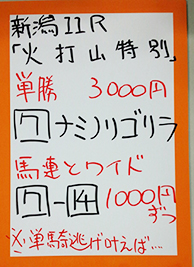 新潟11R
「火打山特別」
単勝 3000円
7 ナミノゴリラ
馬連とワイド
7-14 1000円
ずつ
※単騎逃げ叶えば…